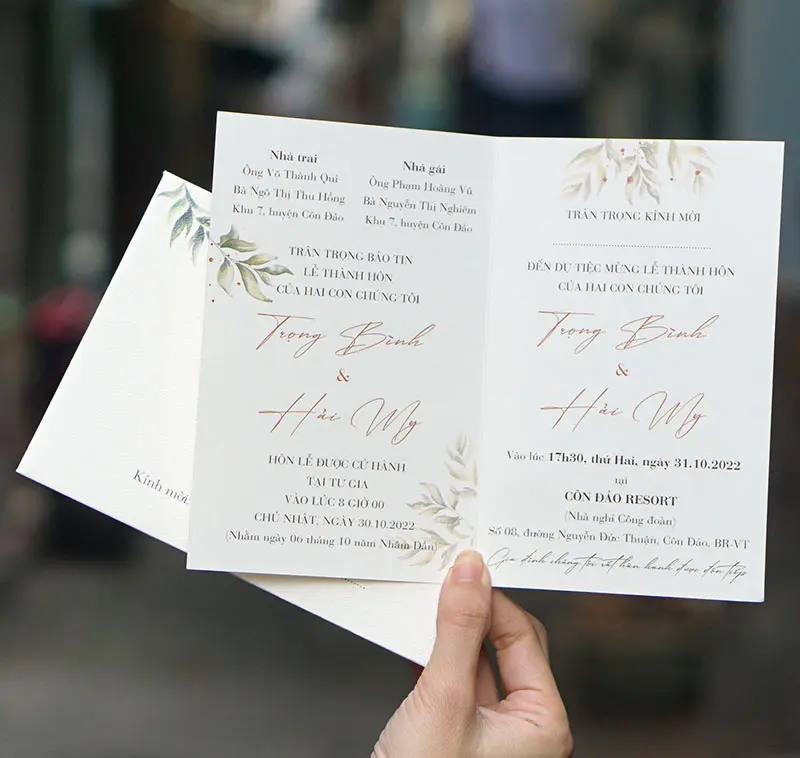 Nhà trai
Ông Võ Thành Quí
Bà Ngô Thị Thu Hồng
Khu 7, huyện Côn Đảo
Nhà gái
Ông Phạm Hoàng Vũ
Bà Nguyễn Thị Nghiêm
Khu 7, huyện Côn Đảo
TRÂN TRỌNG BÁO TIN
LỄ THÀNH HÔN
CỦA HAI CON CHÚNG TÔI
Trọng Bình
&
Hải My
HÔN LỄ ĐƯỢC CỬ HÀNH
TẠI TƯ GIA
VÀO LÚC 8 GIỜ 00
CHỦ NHẬT, NGÀY 30.10.2022
(Nhằm ngày 06 tháng 10 năm Nhâm Dần)
TRÂN TRỌNG KÍNH MỜI
ĐẾN DỰ TIỆC MỪNG LỄ THÀNH HÔN
CỦA HAI CON CHÚNG TÔI
Trọng Bình
&
Hải My
Vào lúc 17h30, thứ Hai, ngày 31.10.2022
tại
CÔN ĐẢO RESORT
(Nhà nghỉ Công đoàn)
Số 08, đường Nguyễn Đức Thuận, Côn Đảo, BR-VT
Gia đình chúng tôi rất hân hạnh được đón tiếp
Kính mời: